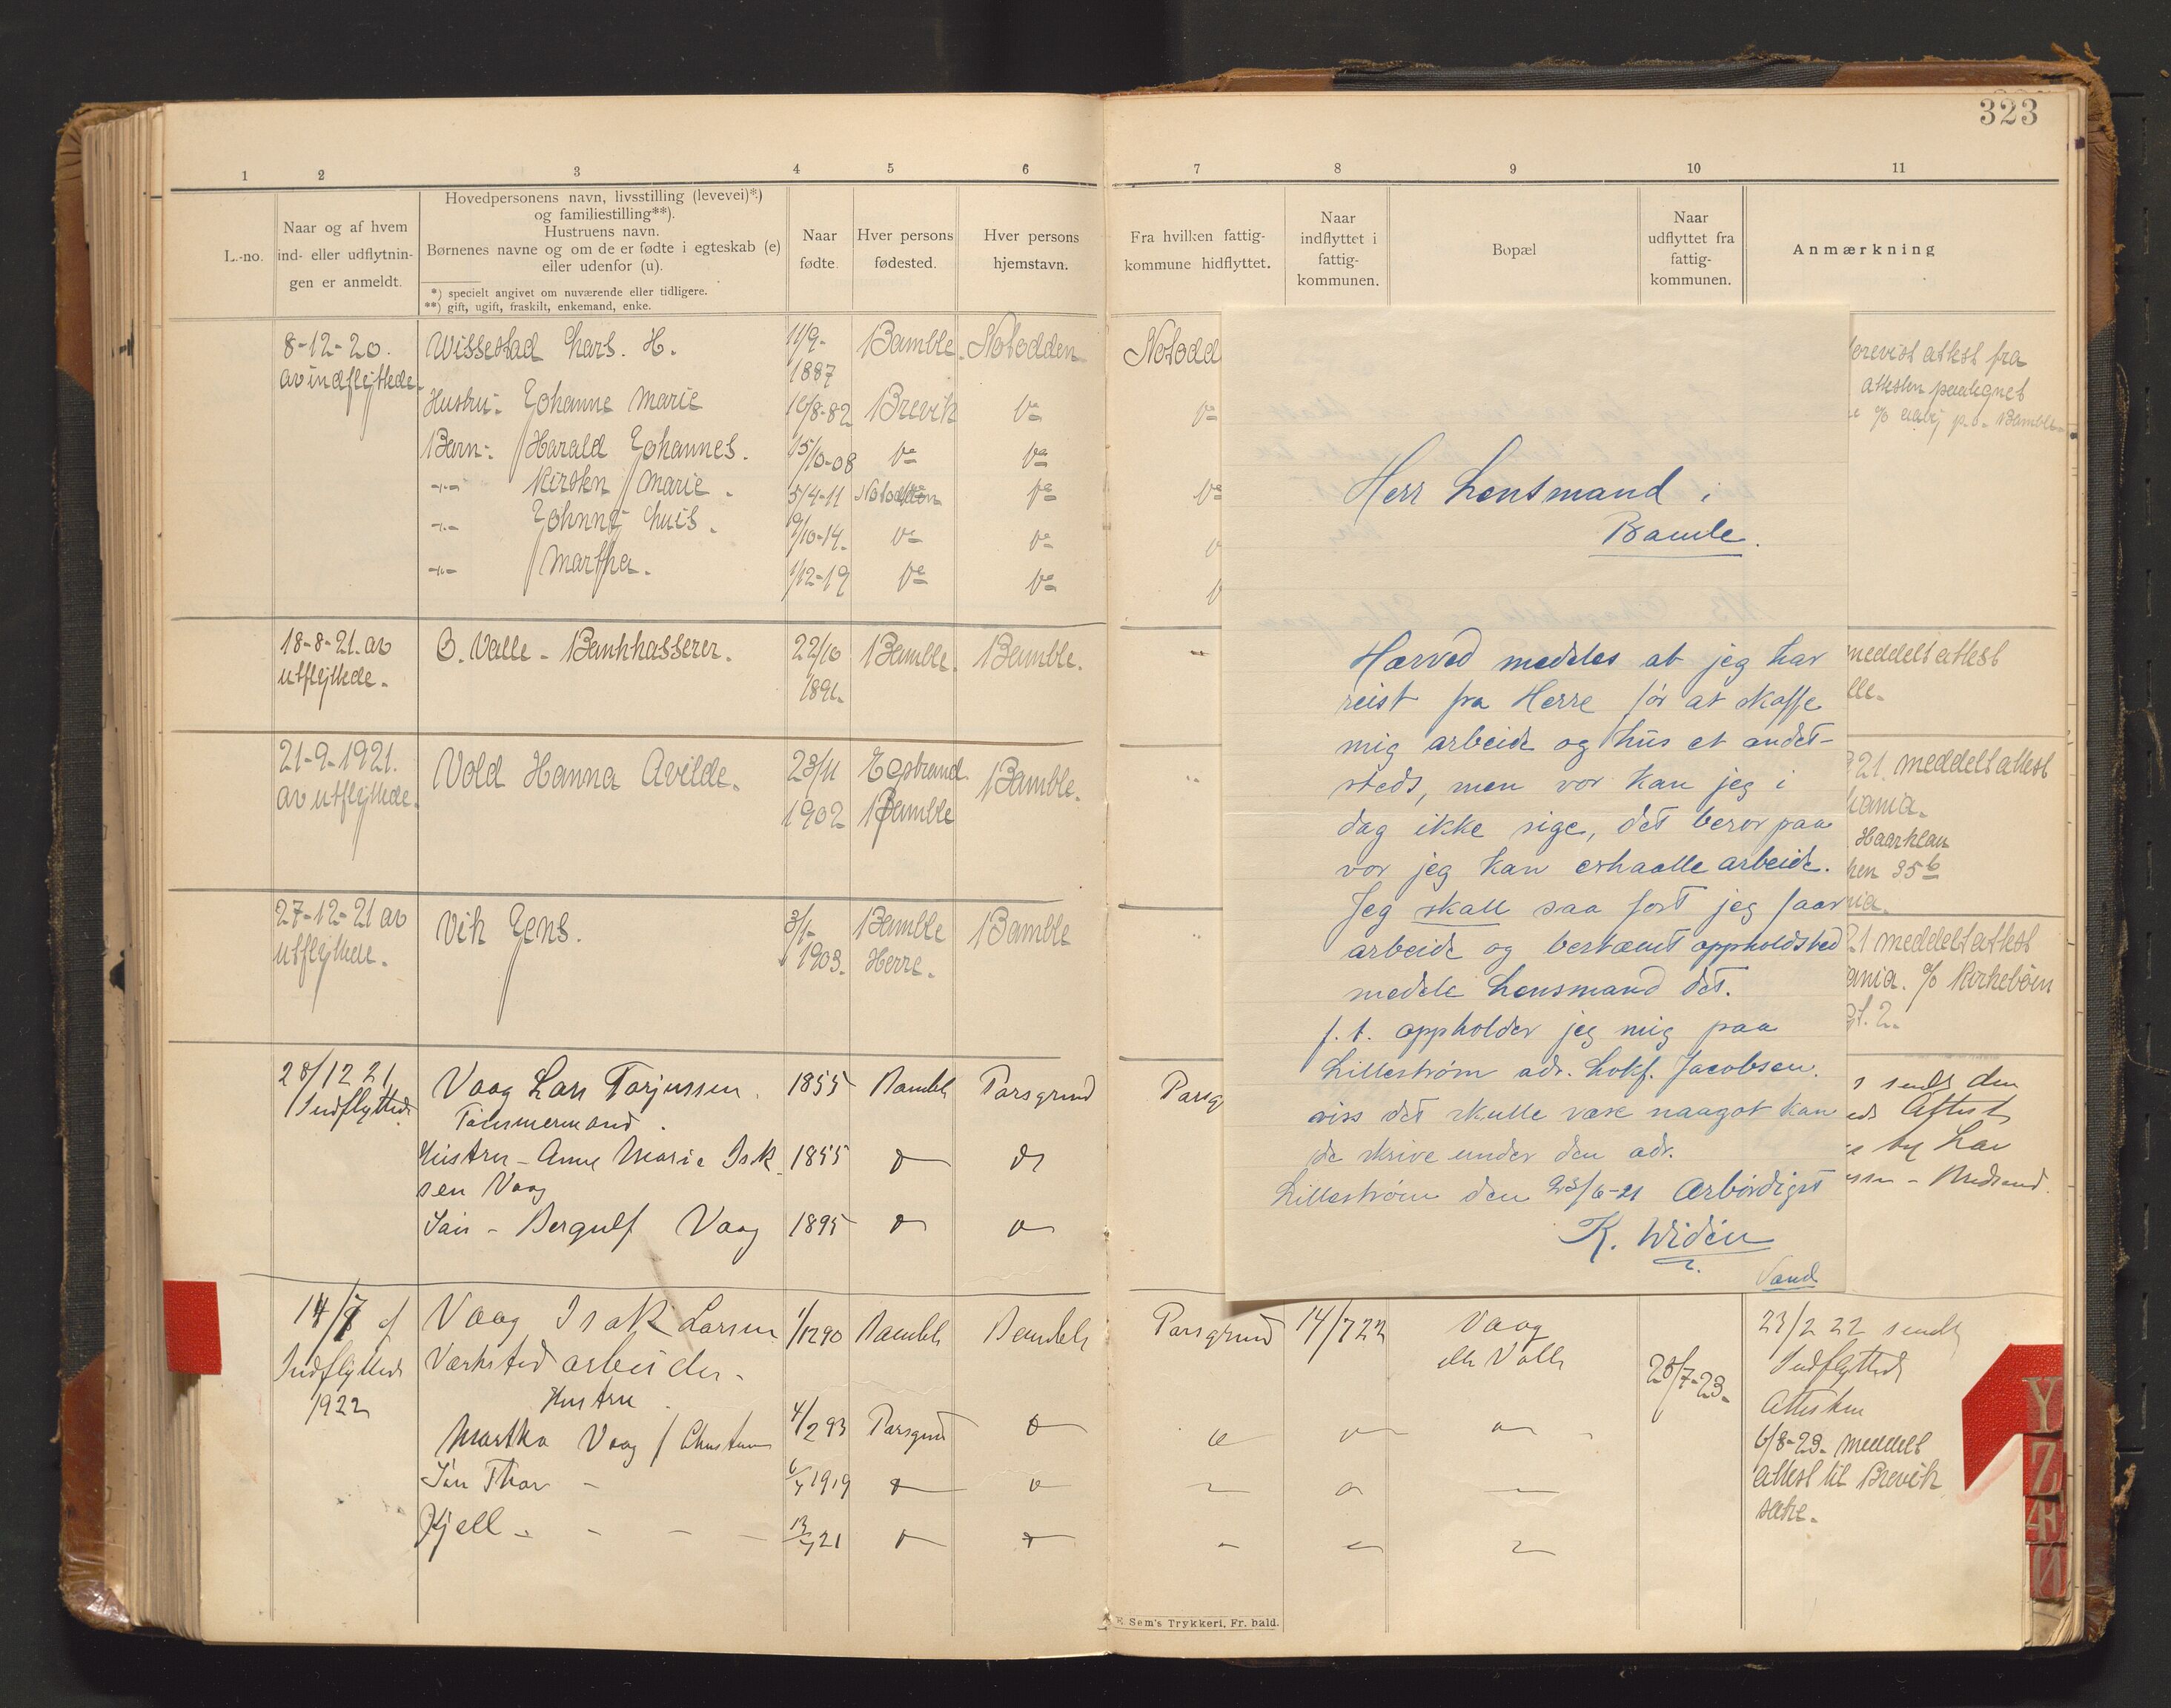 323
1 2 3 4 5 6 7 8 9 10 11
L.-no.
Naar og af hvem
ind- eller udflytnin-
gen er anmeldt.
Hovedpersonens navn, livsstilling (levevei)*)
og familiestilling**).
Hustruens navn.
Børnenes navne og om de er fødte i egteskab (e)
eller udenfor (u).
*) specielt angivet om nuværende eller tidligere.
**) gift, ugift, fraskilt, enkemand, enke.
Naar
fødte.
Hver persons
fødested.
Hver persons
hjemstavn.
Fra hvilken fattig-
kommune hidflyttet.
Naar
indflyttet i
fattig-
kommunen.
Bopæl
Naar
udflyttet fra
fattig-
kommunen.
Anmærkning
8-12-20.
av indflyttede.
Wissestad Lars. H. 11/9- 1887 Bamble. Notodden Notodd
Hustru: Johanne Marie 10/8-82 Brevik do do
Barn: Harald Johannes. 15/10-08 do do
-"- Kirsten Marie. 5/4-11 Notodden do do
-"- Johnny Luis. 9/10-14. do do
-"- Martha. 1/12-19 do do
erevist attest fra
attesten paategnet
p.t. Bamble
18-8-21. av
utflyttede.
O. Valle - Bankkasserer. 22/10 1891. Bamble. Bamble.
meddelt attest
lle.
21-9-1921.
av utflyttede.
Vold Hanna Avilde. 23/11 1902 Egstrand Bamble Bamble.
921. meddelt attest
iania.
Haarklau
ken 35b
nia.
27-12-21 av
utflyttede.
Vik Jens. 3/1- 1903. Bamble Herre. Bamble
21 meddelt attest
ania. c/o Kirkebøen
gt. 2.
28/12 21
Indflyttede
Vaag Lars Torjussen. 1855 Bamble Porsgrund Porsg
Tømmermand.
Hustru - Anne Marie Isak 1855 do do
sen Vaag
Søn - Bergulf Vaag 1895 do do
s sendt den
Attest
Herr Lensmand i
Bamle.
Hærved medeles at jeg har
reist fra Herre før at skaffe
mig arbeide og hus et andet-
steds, men vor kan jeg i
dag ikke sige, det beror paa
vor jeg kan erhaalle arbeide.
Jeg skall saa fort jeg faar
arbeide og bestæmt oppholdsted
medele Lensmand det.
f. t. oppholder jeg mig paa
Lillestrøm adr. Lokf. Jacobsen.
viss det skulle være naagot kan
de skrive under den adr.
Lillestrøm den 23/6-21 Ærbødigst
K. Widén
Vænd
14/7 af
Indflyttede
1922
Vaag Isak Larsen 1/12 90 Bamble Bamble Porsgrund 14/7 22 Vaag
Værksted arbeider - elle Valle 28/7-23.
Hustru
Martha Vaag f. Christensen 4/2 93 Porsgrund do
Søn Thor - 6/7 1919 do do
Kjell - - - - 13/5 21 do do
23/2 22 sendt
Indflyttede
Attesten
6/8-23. meddelt
attest til Brevik
søke.
E. Sem's Trykkeri, Fr. hald.
Y
Z
Æ
Ø